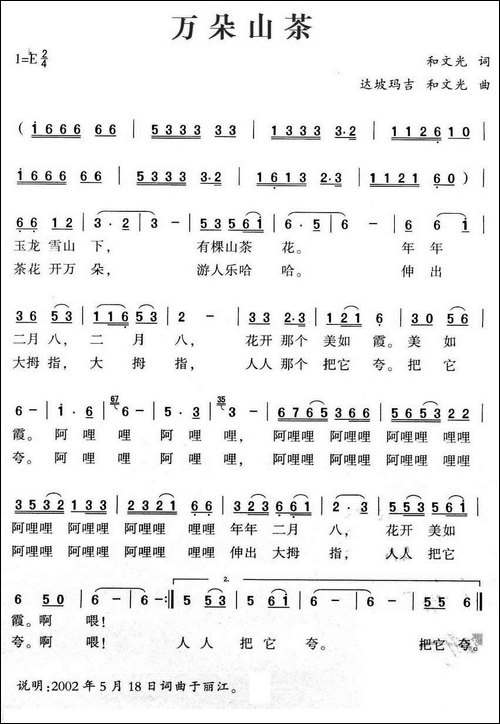 万朵山茶
1=E 2/4
和文光 词
达坡玛吉 和文光 曲
( i666 66 | 5333 33 | 1333 3·2 | 1126 10 |
i666 66 | 5333 3·2 | 1613 2·3 | 1121 60 ) |
66 12 | 3·2 | 3 - | 53561 | 6·5 | 6 - | 6 6 i |
玉龙 雪山 下, 有棵山茶 花。 年 年
茶花 开万 朵, 游人乐哈 哈。 伸 出
36 53 | 3·2 | 1 123 | 2 - | 33 2·3 | 121 6 | 30 56 |
二月 八, 二 月 八, 花开 那个 美如 霞。美 如
大拇 指, 大 拇 指, 人人 那个 把它 夸。把 它
6 - | i·6 | 6 - | 5·3 | 3 - | 6765 366 | 5653 22 |
霞。 阿 哩 哩 阿 哩 哩, 阿哩哩 阿哩哩 阿哩哩 哩哩
夸。 阿 哩 哩 阿 哩 哩, 阿哩哩 阿哩哩 阿哩哩 哩哩
3532 133 | 2321 66 | 33 561 | 2·3 | 53 561 |
阿哩哩 阿哩哩 阿哩哩 哩哩 年年 二月 八, 花开 美如
阿哩哩 阿哩哩 阿哩哩 哩哩 伸出 大拇 指, 人人 把它
6 50 | 6 - | 6 - :‖ 5 53 | 5 61 | 6 - | 6 - | 55 6 ‖
2.
霞。啊 喂!
夸。啊 喂! 人 人 把 它 夸。 把它 夸。
说明:2002 年 5 月 18 日词曲于丽江。